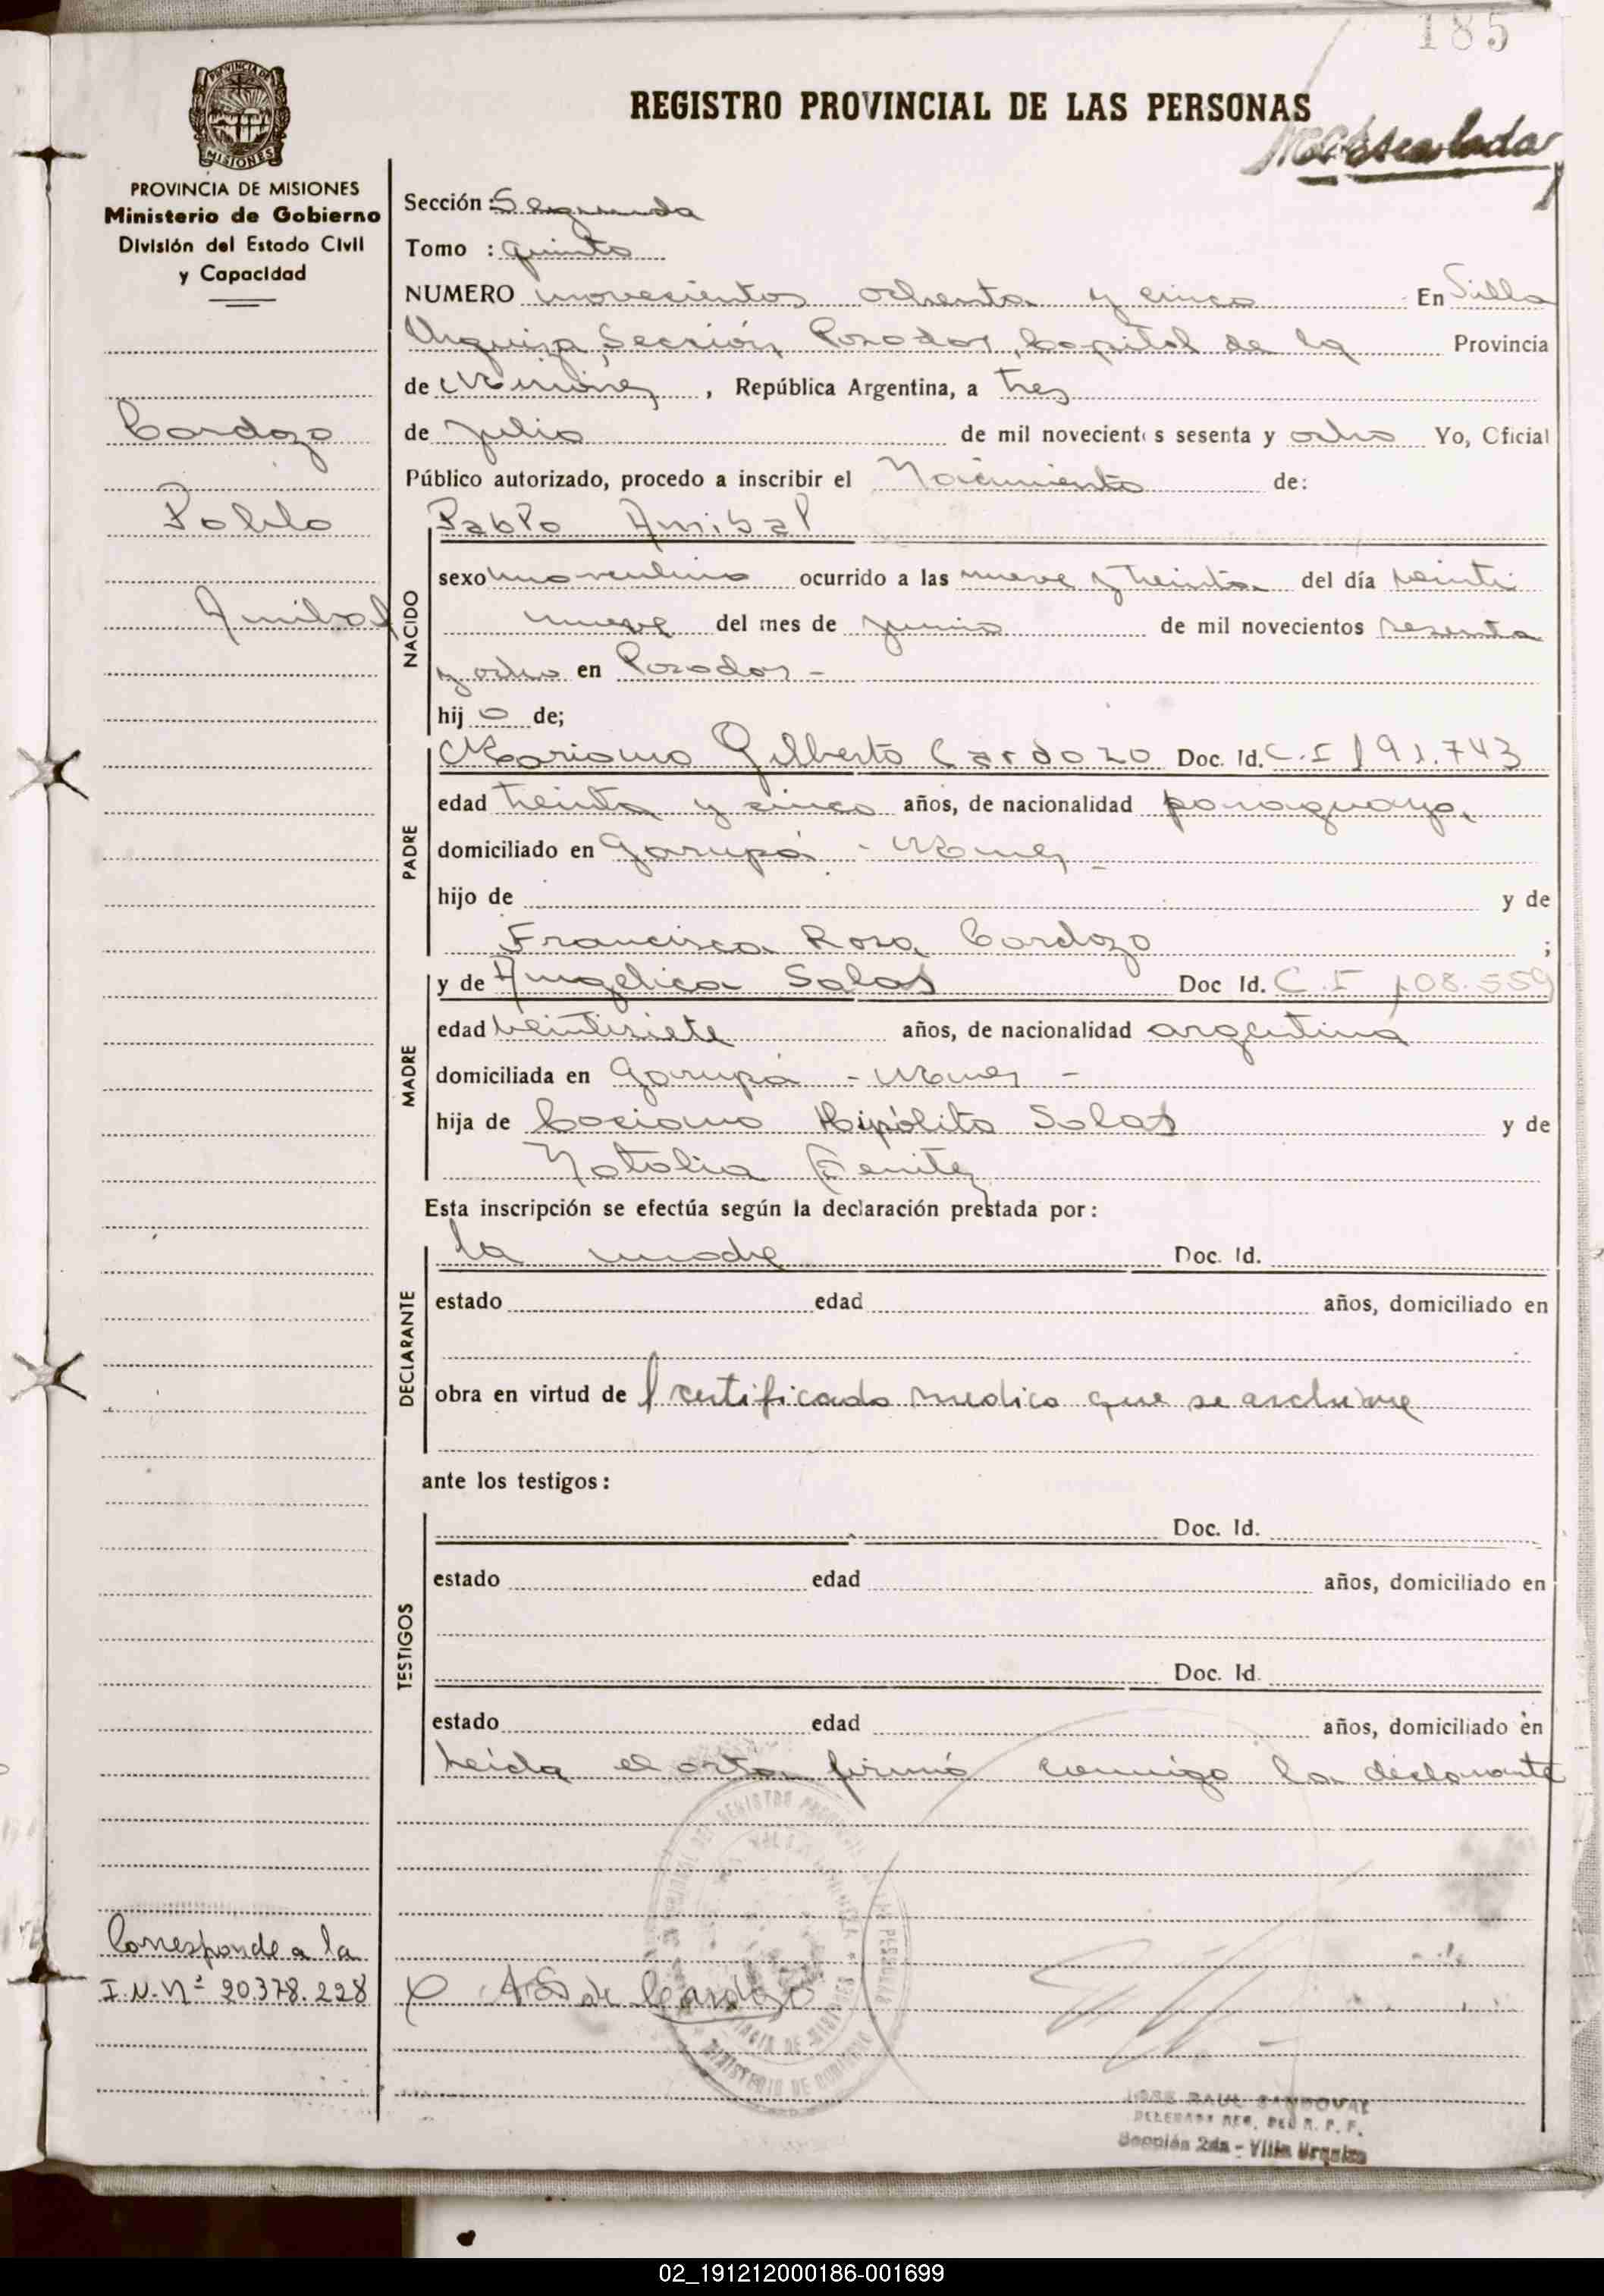 185
REGISTRO PROVINCIAL DE LAS PERSONAS
PROVINCIA DE MISIONES
MISIONES
PROVINCIA DE MISIONES
Ministerio de Gobierno
División del Estado Civil
y Capacidad
Cardozo
Pablo
Anibal
Sección: Segunda
Tomo : quinto
NUMERO novecientos ochenta y cinco En Villa
Urquiza, Sección, Posadas, Capital de la Provincia
de Misiones, República Argentina, a tres
de julio de mil novecientos sesenta y ocho Yo, Oficial
Público autorizado, procedo a inscribir el Nacimiento de:
NACIDO
Pablo Anibal
sexo masculino ocurrido a las nueve y treinta del día veinti
nueve del mes de junio de mil novecientos sesenta
y ocho en Posadas -
hij o de;
PADRE
Mariano Gilberto Cardozo Doc. Id. C.I 191.743
edad treinta y cinco años, de nacionalidad paraguaya,
domiciliado en Garupá - Mnes -
hijo de y de
Francisca Rosa Cardozo ;
MADRE
y de Angelica Salas Doc Id. C.I 108.559
edad veintisiete años, de nacionalidad argentina
domiciliada en Garupá - Mnes -
hija de Hipólito Salas y de
Natalia Benitez
Esta inscripción se efectúa según la declaración prestada por:
DECLARANTE
la madre Doc. Id.
estado edad años, domiciliado en
obra en virtud de l certificado medico que se archive
ante los testigos:
TESTIGOS
Doc. Id.
estado edad años, domiciliado en
Doc. Id.
estado edad años, domiciliado en
Leida el acta, firmó conmigo la declarante
Corresponde a la
I.N.Nº 20.378.228
A S de Cardozo
MINISTERIO DE GOBIERNO
JOSE RAUL SANDOVAL
Sección 2da - Villa Urquiza
02_191212000186-001699